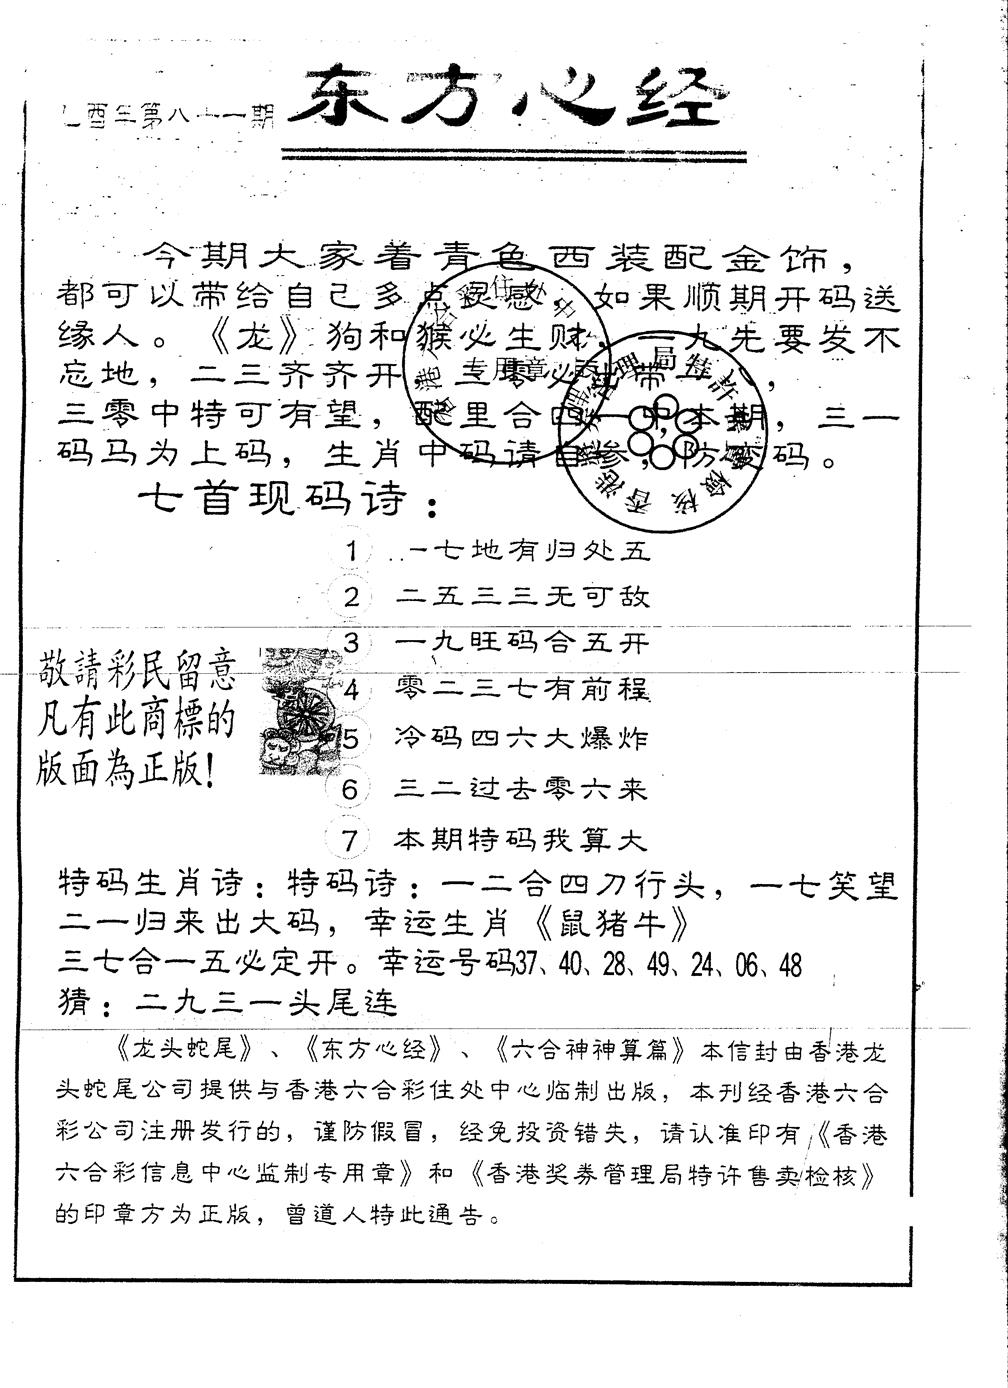 东方心经
乙酉年第八十一期
今期大家着青色西装配金饰，
都可以带给自己多点灵感，如果顺期开码送
缘人。《龙》狗和猴必生财，一九先要发不
忘地，二三齐齐开，三零必出带一七，
三零中特可有望，配里合四一中本期，三一
码马为上码，生肖中码请自参，防变码。
专用章
管理局特許售賣檢核
香港
七首现码诗：
1 一七地有归处五
2 二五三三无可敌
3 一九旺码合五开
4 零二三七有前程
5 冷码四六大爆炸
6 三二过去零六来
7 本期特码我算大
敬請彩民留意
凡有此商標的
版面為正版！
特码生肖诗：特码诗：一二合四刀行头，一七笑望
二一归来出大码，幸运生肖《鼠猪牛》
三七合一五必定开。幸运号码37、40、28、49、24、06、48
猜：二九三一头尾连
《龙头蛇尾》、《东方心经》、《六合神神算篇》本信封由香港龙
头蛇尾公司提供与香港六合彩住处中心临制出版，本刊经香港六合
彩公司注册发行的，谨防假冒，经免投资错失，请认准印有《香港
六合彩信息中心监制专用章》和《香港奖券管理局特许售卖检核》
的印章方为正版，曾道人特此通告。